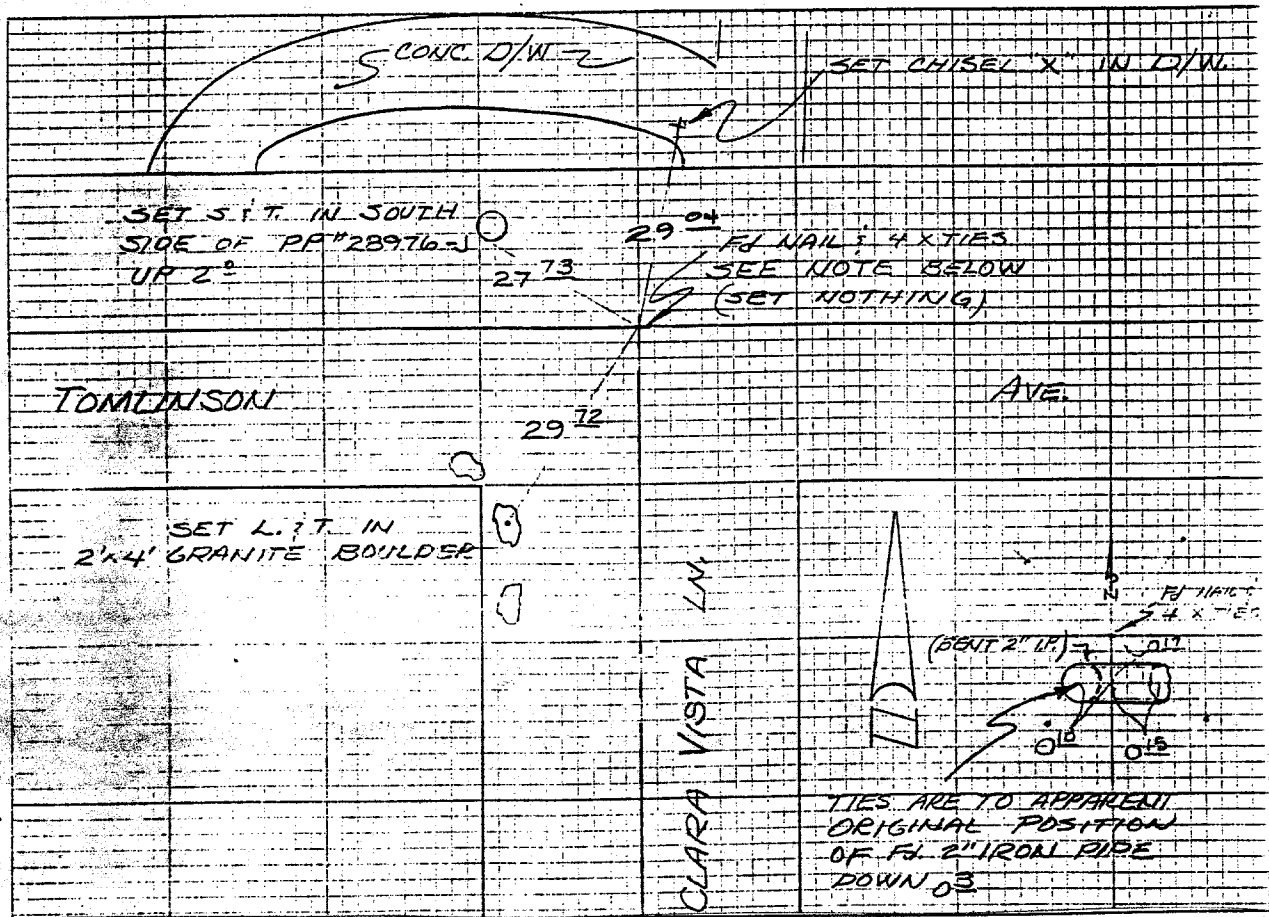 CONC. D/W
SET CHISEL "X" IN D/W
SET S & T. IN SOUTH
SIDE OF PP#28976-J
UP 2.0
27.73
29.04
Fd NAIL & 4 X TIES
SEE NOTE BELOW
(SET NOTHING)
TOMLINSON
AVE.
29.72
SET L. & T. IN
2'x4' GRANITE BOULDER
CLARA VISTA LN.
N
Fd NAIL &
4 X TIES
(BENT 2" I.P.)
0.17
0.10
0.15
TIES ARE TO APPARENT
ORIGINAL POSITION
OF Fd. 2" IRON PIPE
DOWN 0.3